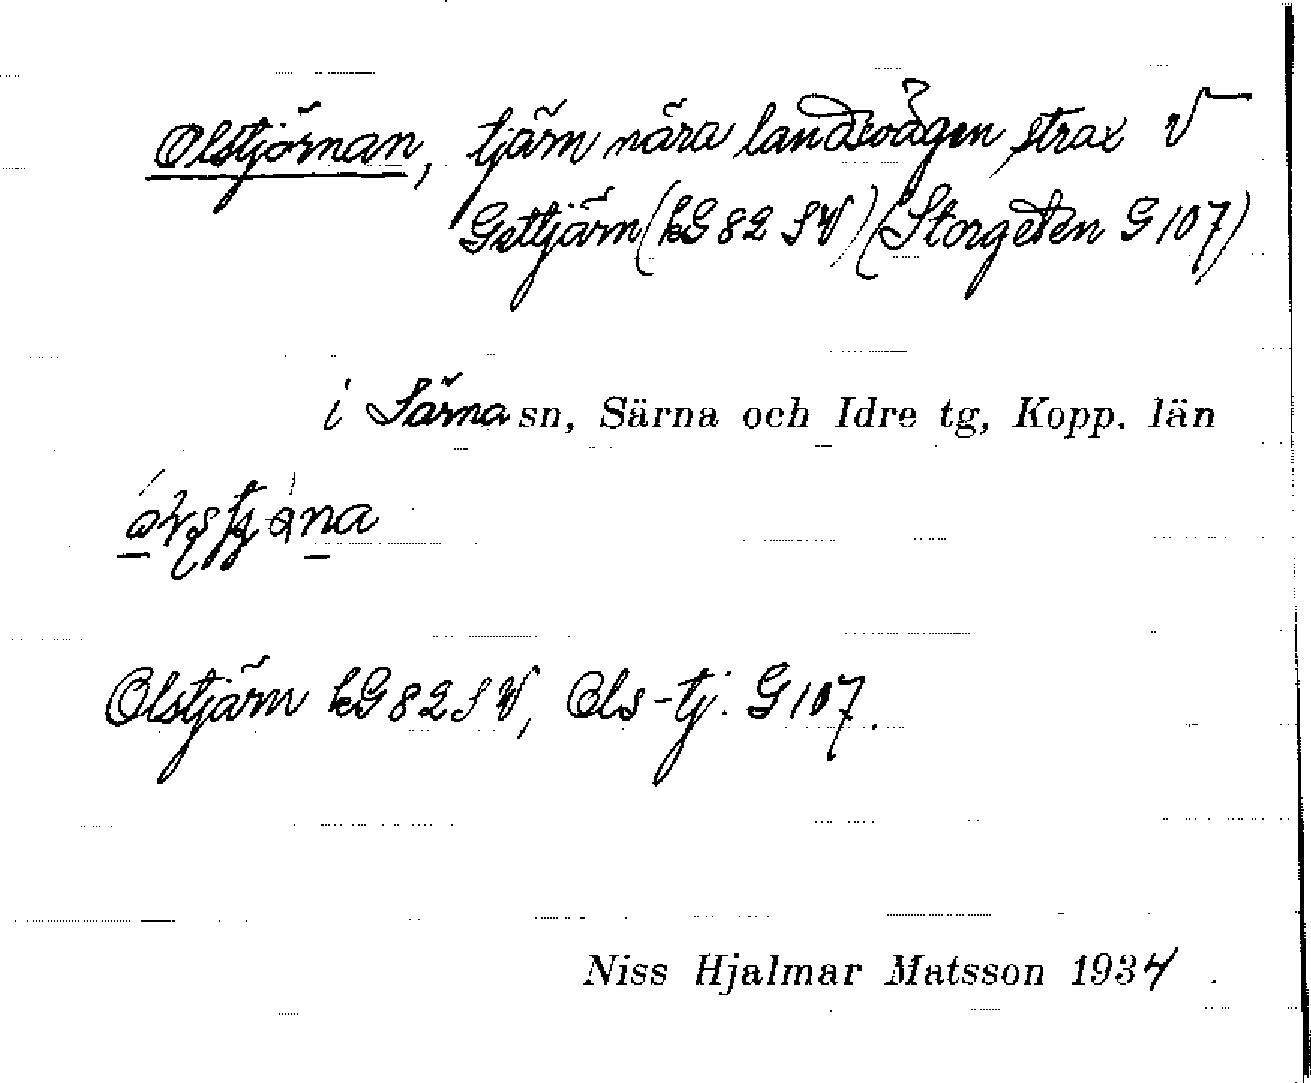 Olstjörnan, tjärn nära landsvägen strax V
Gettjärn (kG 82 SV) (Storgeten G 107)
i Särna sn, Särna och Idre tg, Kopp. län
Olstjärn kG 82 SV, Ols-tj. G 107.
Niss Hjalmar Matsson 1934